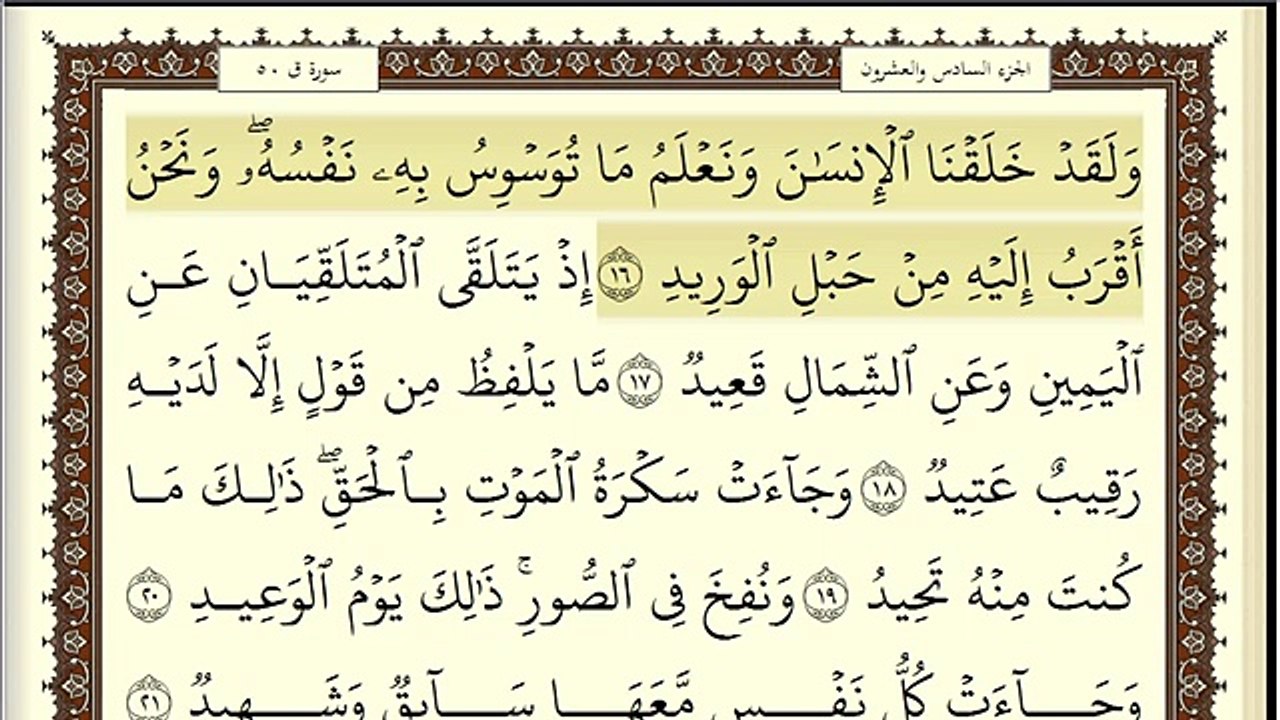 الجزء السادس والعشرون
سورة ق ٥٠
وَلَقَدۡ خَلَقۡنَا ٱلۡإِنسَٰنَ وَنَعۡلَمُ مَا تُوَسۡوِسُ بِهِۦ نَفۡسُهُۥۖ وَنَحۡنُ
أَقۡرَبُ إِلَيۡهِ مِنۡ حَبۡلِ ٱلۡوَرِيدِ ١٦ إِذۡ يَتَلَقَّى ٱلۡمُتَلَقِّيَانِ عَنِ
ٱلۡيَمِينِ وَعَنِ ٱلشِّمَالِ قَعِيدٞ ١٧ مَّا يَلۡفِظُ مِن قَوۡلٍ إِلَّا لَدَيۡهِ
رَقِيبٌ عَتِيدٞ ١٨ وَجَآءَتۡ سَكۡرَةُ ٱلۡمَوۡتِ بِٱلۡحَقِّۖ ذَٰلِكَ مَا
كُنتَ مِنۡهُ تَحِيدُ ١٩ وَنُفِخَ فِي ٱلصُّورِۚ ذَٰلِكَ يَوۡمُ ٱلۡوَعِيدِ ٢٠
وَجَآءَتۡ كُلُّ نَفۡسٖ مَّعَهَا سَآئِقٞ وَشَهِيدٞ ٢١